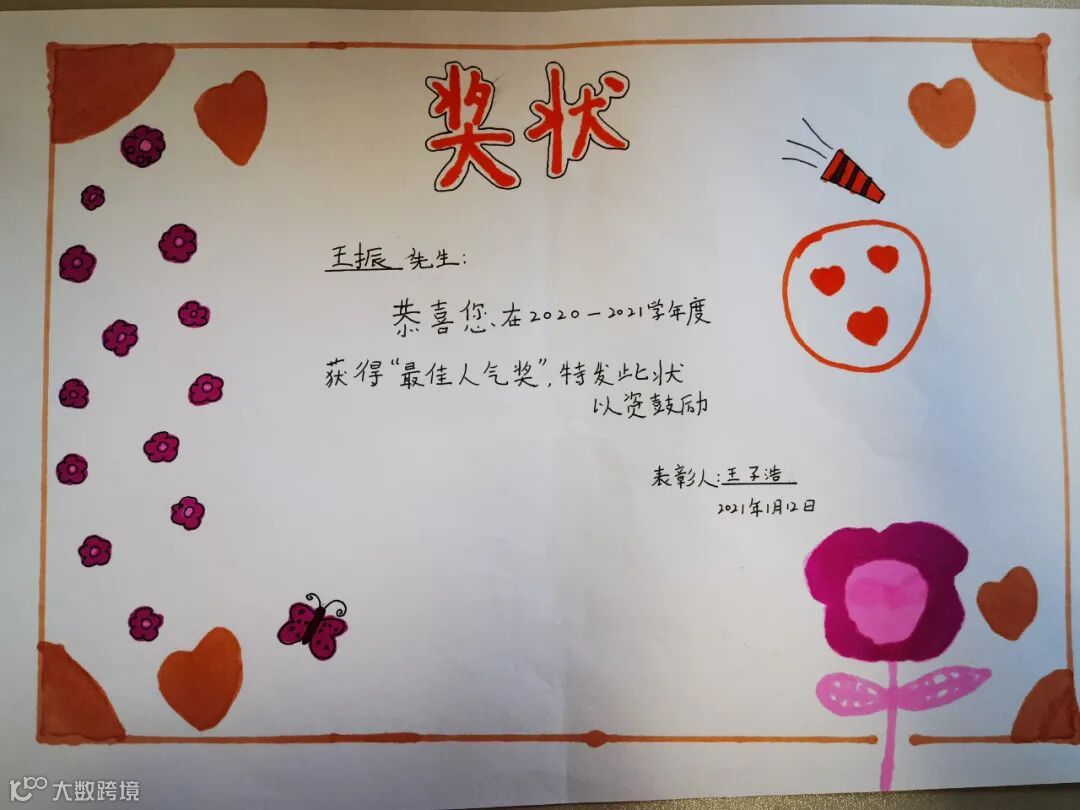 奖状
王振 先生:
恭喜您、在2020—2021学年度
获得“最佳人气奖”,特发此状
以资鼓励
表彰人:王子浩
2021年1月12日
大数跨境